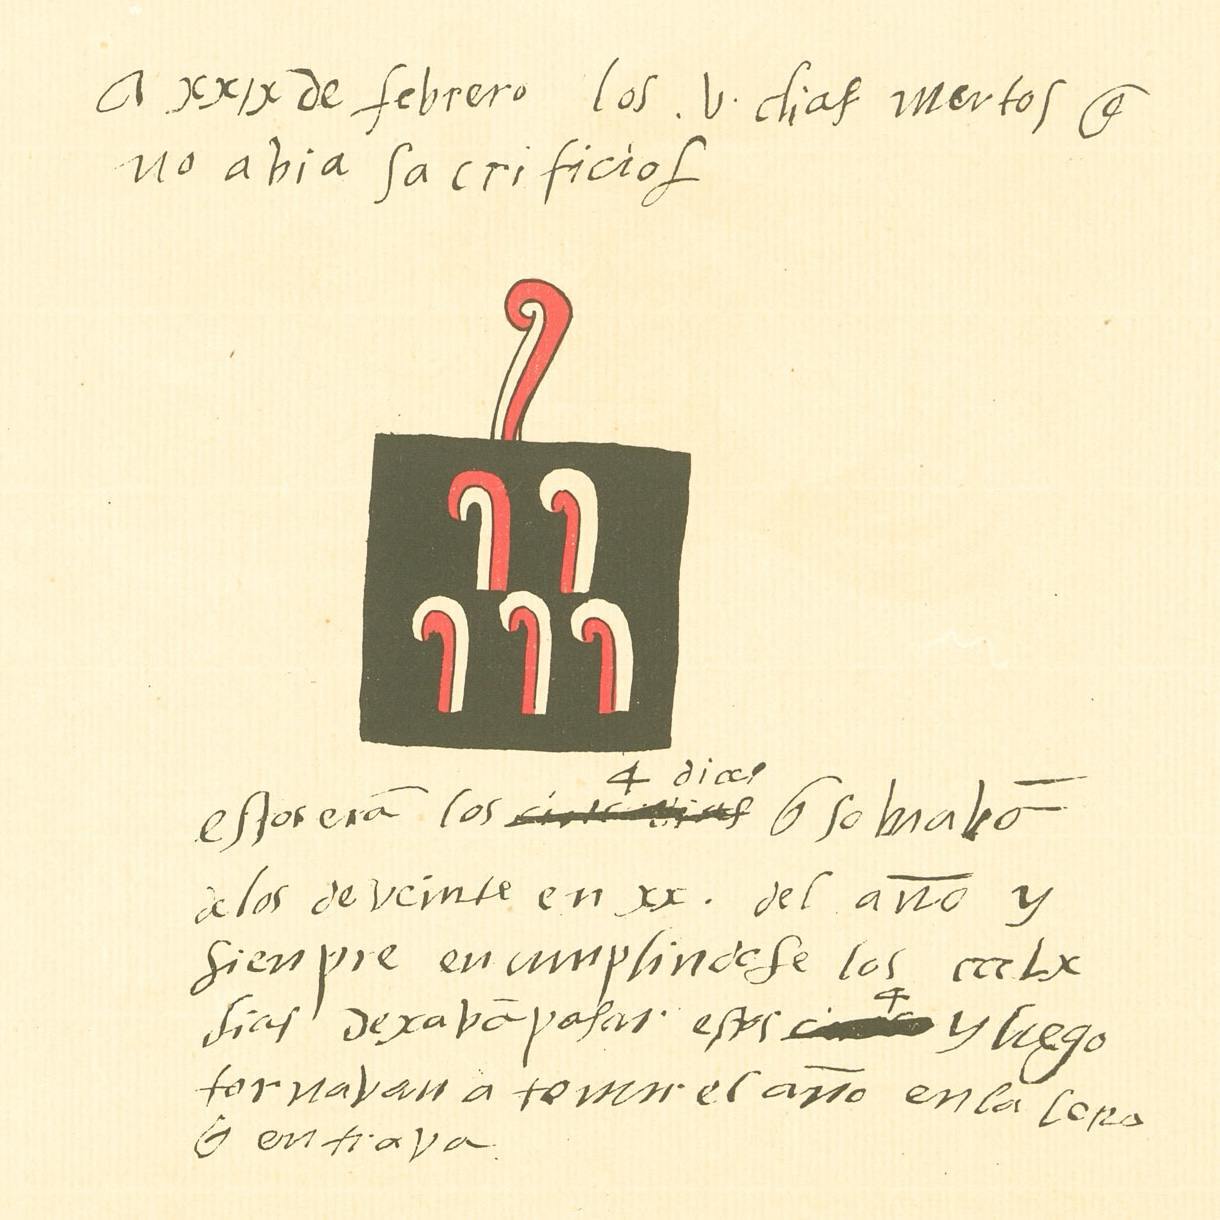 A xxix de febrero los .v. dias mertos q̃
no abia sacrificios
4 dias
estos erã los q̃ sobrabã
a los de veinte en xx. del año y
sienpre en cunplindose los ccclx
dias dexabã pasar estos 4 y luego
tornavan a tomar el año en la
q̃ entrava